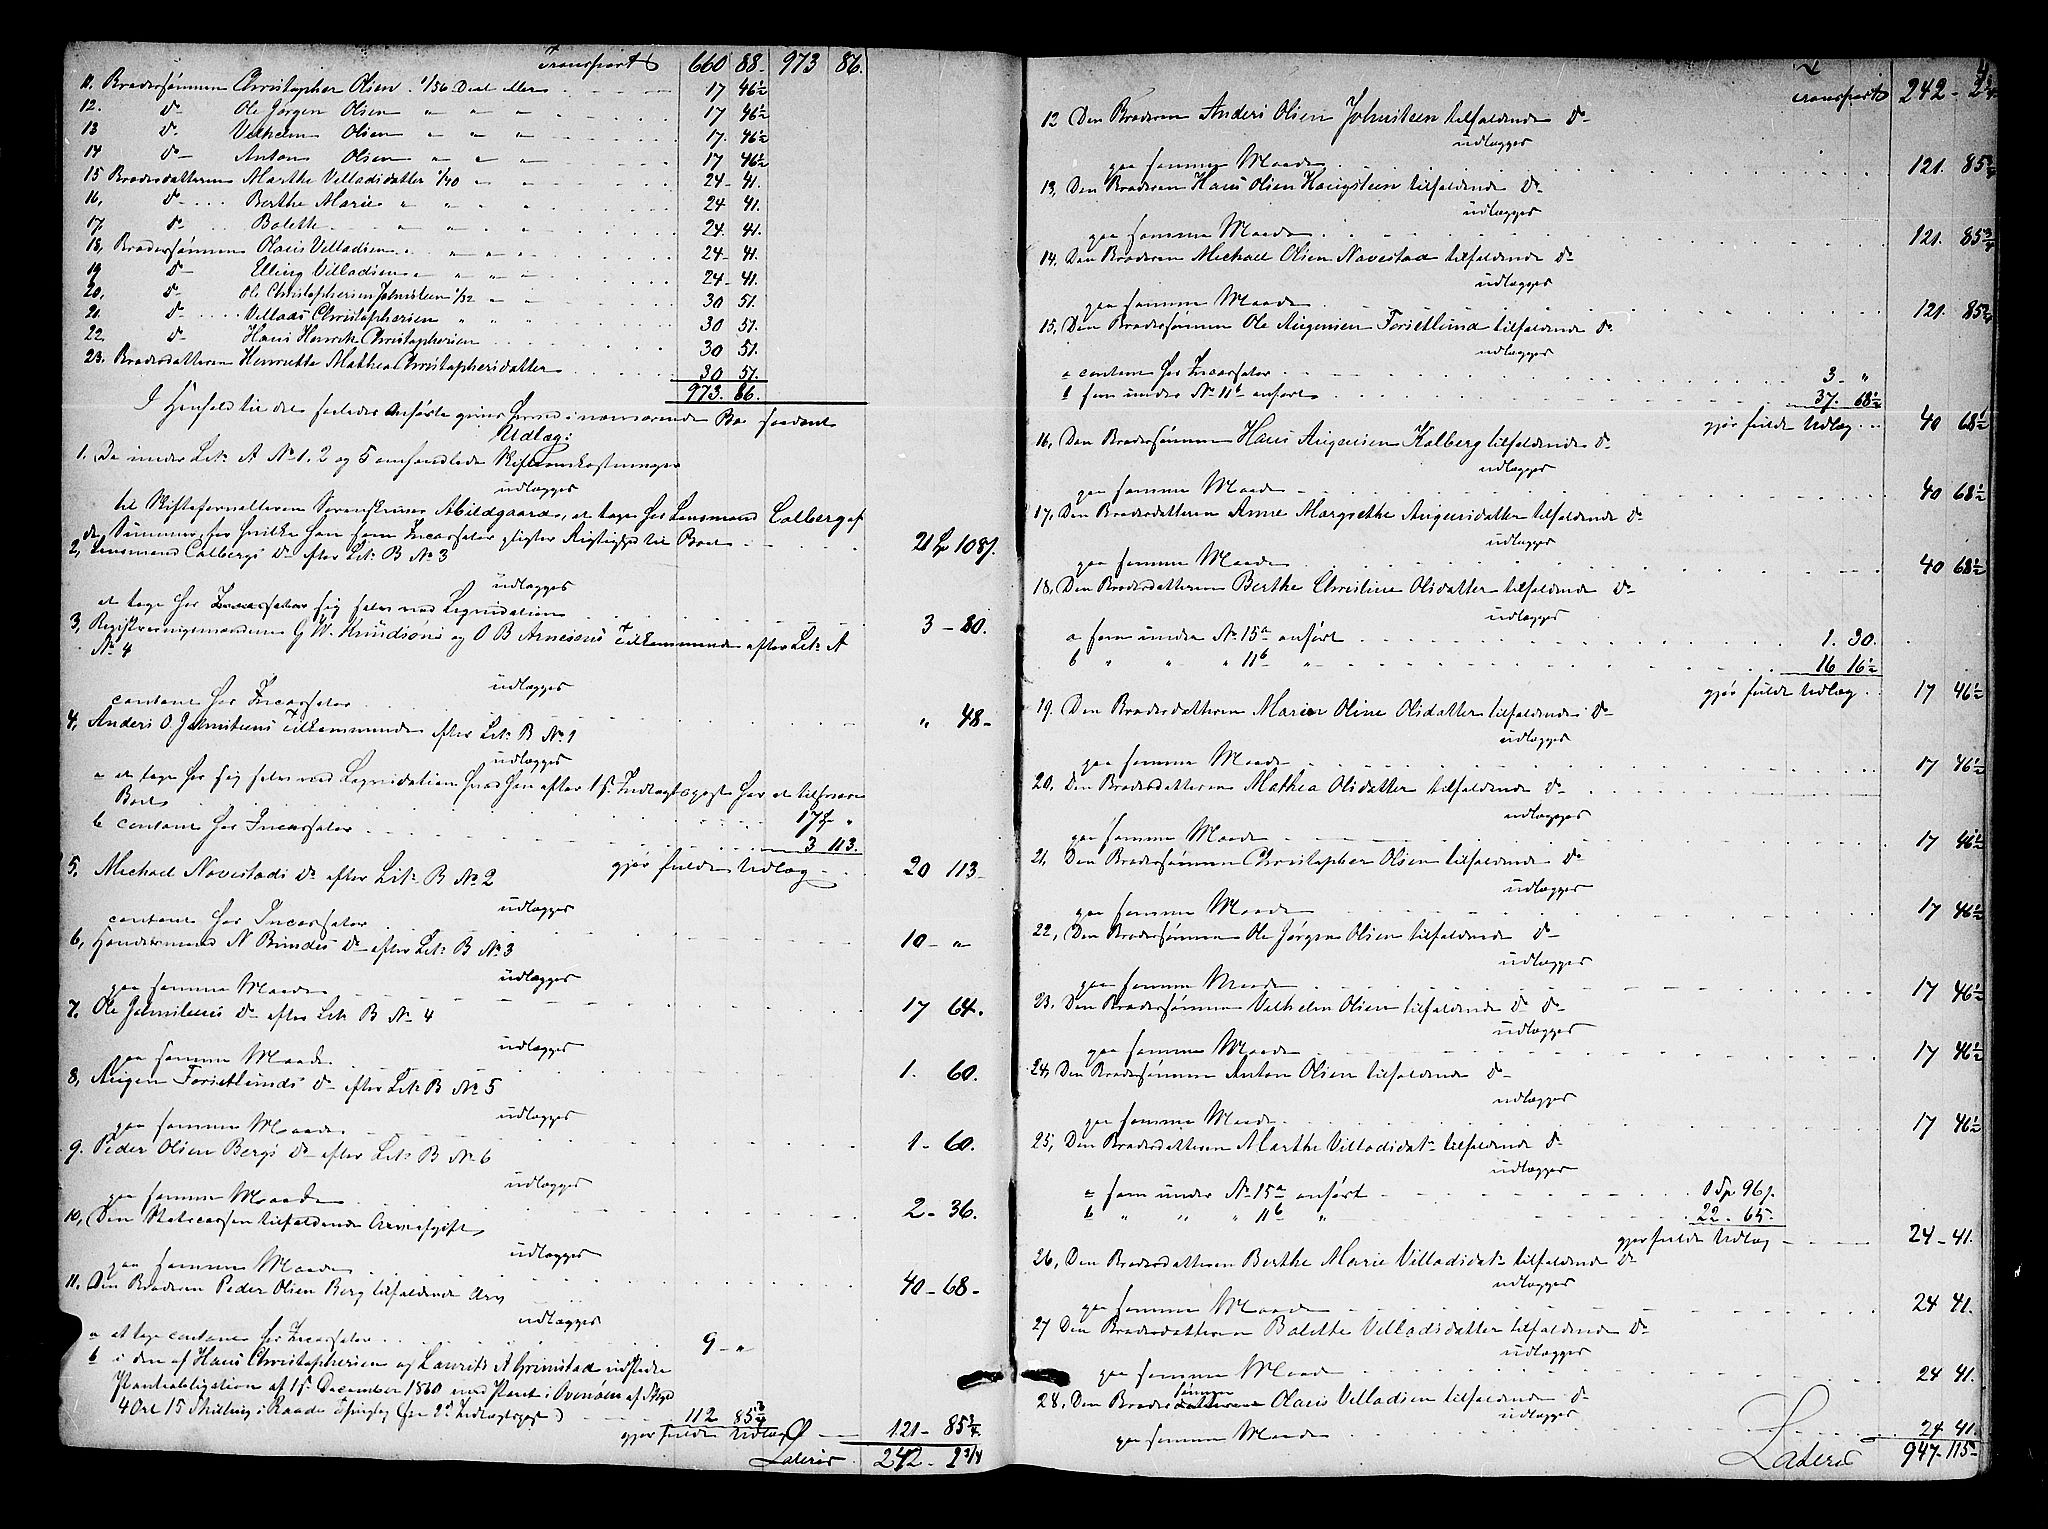 Transport 660 88 973 86.
11. Brodersønnen Christopher Olsen 1/56 Deel eller 17 46½
12. do Ole Jørgen Olsen " " " 17 46½
13 do Velhelm Olsen " " " 17. 46½
14 do Anton Olsen " " " 17 46½
15 Broderdatteren Marthe Villadsdatter 1/40 " " 24 - 41.
16, do Berthe Marie " " " 24 41.
17, do Bolette " " " 24. 41.
18, Brodersønnen Olaus Villadsen " " " 24 - 41.
19 do Elling Villadsen " " " 24 - 41.
20, do Ole Christophersen Johnsteen 1/32 " 30 51.
21 do Villads Christophersen " " 30 51.
22 do Hans Henrik Christophersen 30 51.
23. Broderdatteren Henriette Mathea Christophersdatter 30 51.
973. 86.
I Henhold til det saaledes Anførte gives herved i nærværende Bo saadant
Udlæg:
1. De under Litr A No 1. 2 og 5 omhandlede Skifteomkostninger
udlægges
til Skifteforvalteren Sorenskriver Abildgaard, at tage hos Lensmand Calberg af
de Summer, for hvilke han som Incassator pligter Rigtighed til Boet 21 Sp 108 s.
2, Lensmand Calbergs do efter Litr B No 3
udlægges
at tage hos Incassator sig selv ved Liqvidation 3 - 80.
3, Registreringsmændene G W. Knudsøns og O B Arnesens Tilkommende efter Litr A
No 4
udlægges
contant hos Incassator " 48 -
4, Anders O. Johnsteens Tilkommende efter Litr B No 1
udlægges
a at tage hos sig selv ved Liqvidation hvad han efter 1ste Indtægtspost har at tilsvare
Boet 17 Sp "
b contant hos Incassator 3 113.
gjør fulde Udlæg 20 113 -
5, Michael Navestads do efter Litr B No 2
udlægges
contant hos Incassator 10 - "
6, Handelsmand N Bundes do efter Litr B No 3
udlægges
paa samme Maade 17 64.
7. Ole Johnsteens do efter Litr B No 4
udlægges
paa samme Maade 1. 60.
8, Augen Forsetlunds do efter Litr B No 5
udlægges
paa samme Maade 1 - 60.
9. Peder Olsen Bergs do efter Litr B No 6
udlægges
paa samme Maade 2 - 36.
10, Den Statscassen tilfaldende Arveafgift
udlægges
paa samme Maade 40 - 68 -
11. Den Broderen Peder Olsen Berg tilfaldende Arv
udlægges
a at tage contant hos Incassator 9 - "
b i den af Hans Christophersen og Laurits A Grimstad udstedte
Pantobligation af 15 December 1860 med Pant i Ovenøen af Skyld
4 Ort 15 Skilling i Raade Thinglag (see 2den Indtægtspost) 112 85¾
gjør fulde Udlæg 121 - 85¾
Lateris 242 - 2¾
Transport 242 - 2¾
12 Den Broderen Anders Olsen Johnsteen tilfaldende do
udlægges
paa samme Maade 121. 85¾
13, Den Broderen Hans Olsen Haugsteen tilfaldende do
udlægges
paa samme Maade 121. 85¾
14. Den Broderen Michael Olsen Navestad tilfaldende do
udlægges
paa samme Maade 121 85¾
15, Den Brodersønnen Ole Augensen Forsetlund tilfaldende do
udlægges
a contant hos Incassator 3 - "
b som under No 11b anført 37. 68½
gjør fulde Udlæg 40 68½
16, Den Brodersønnen Hans Augensen Kalberg tilfaldende do
udlægges
paa samme Maade 40 68½
17, Den Broderdatteren Anne Margrethe Augensdatter tilfaldende do
udlægges
paa samme Maade 40 68½
18, Den Broderdatteren Berthe Christine Olsdatter tilfaldende do
udlægges
a som under No 15a anført 1. 30.
b " " " 11b " 16 16½
gjør fulde Udlæg 17 46½
19. Den Broderdatteren Maren Oline Olsdatter tilfaldende do
udlægges
paa samme Maade 17 46½
20. Den Broderdatteren Mathea Olsdatter tilfaldende do
udlægges
paa samme Maade 17 46½
21. Den Brodersønnen Christopher Olsen tilfaldende do
udlægges
paa samme Maade 17 46½
22, Den Brodersønnen Ole Jørgen Olsen tilfaldende do
udlægges
paa samme Maade 17 46½
23. Den Brodersønnen Velhelm Olsen tilfaldende do do
udlægges
paa samme Maade 17 46½
24, Den Brodersønnen Anton Olsen tilfaldende do
udlægges
paa samme Maade 17 46½
25, Den Broderdatteren Marthe Villadsdatr tilfaldende do
udlægges
a som under No 15a anført 1 Sp 96 s.
b " " " 11b " 22 - 65.
gjør fulde Udlæg 24 - 41.
26, Den Broderdatteren Berthe Marie Villadsdatr tilfaldende do
udlægges
paa samme Maade 24 41.
27 Den Broderdatteren Bolette Villadsdatter tilfaldende do
udlægges
paa samme Maade 24 41.
28, Den Brodersønnen Olaus Villadsen tilfaldende do
udlægges
paa samme Maade 24 41.
Lateris 947 - 115 -